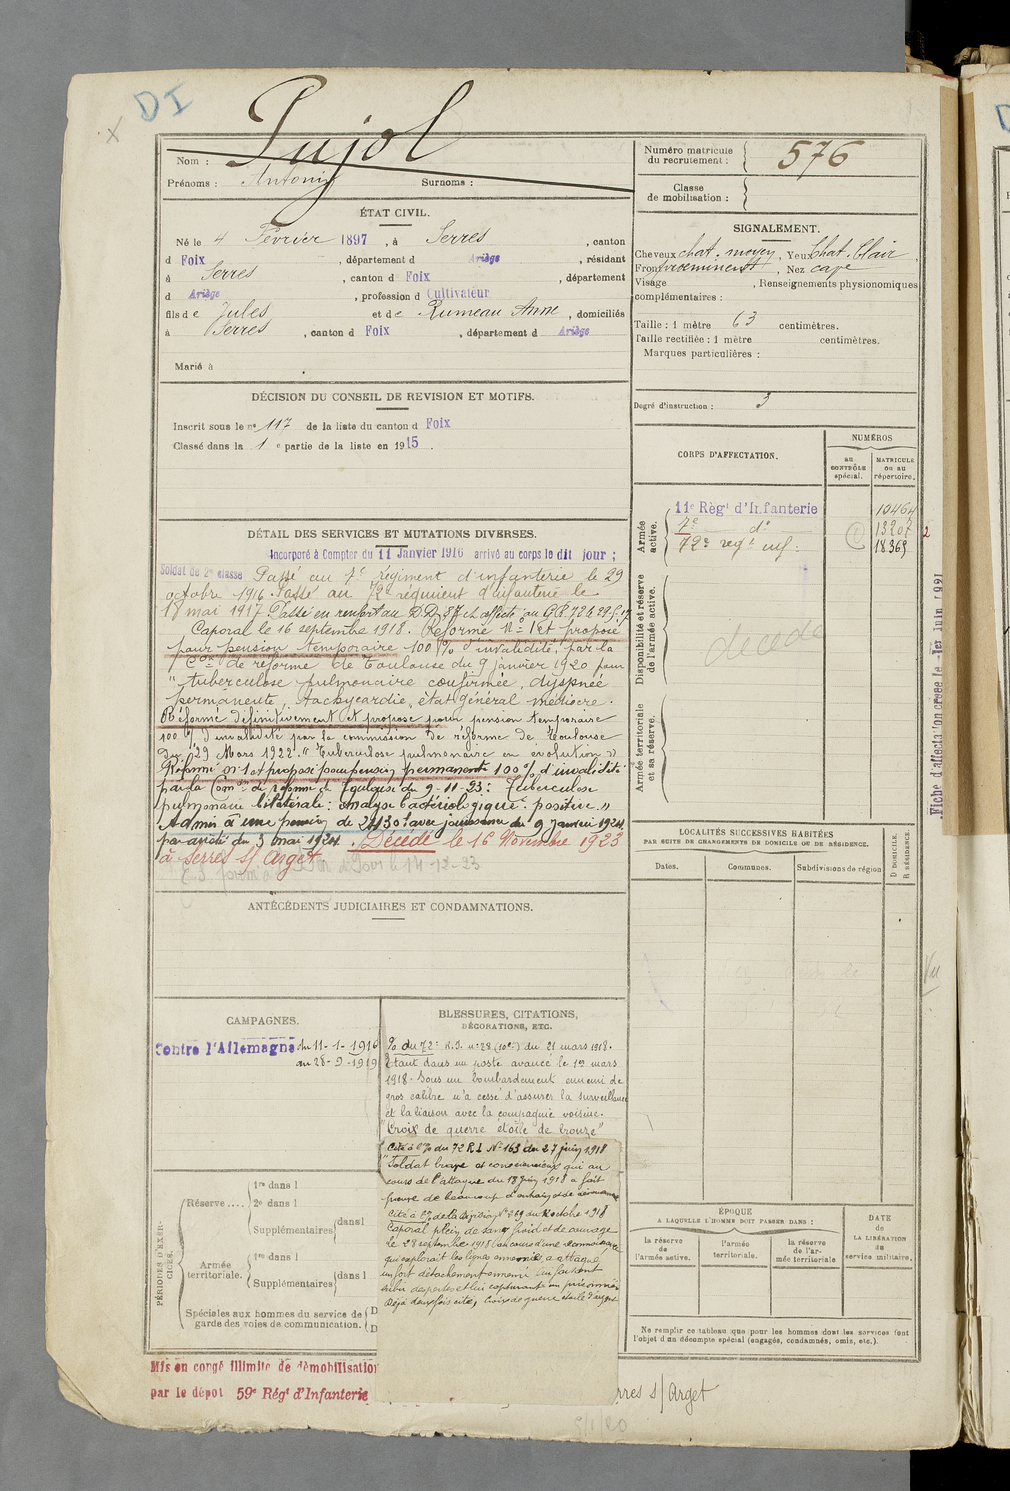 DI
Pujol
Nom :
Prénoms : Antonin Surnoms :
Numéro matricule du recrutement : 576
Classe de mobilisation :
ÉTAT CIVIL.
Né le 4 Février 1897, à Serres, canton
d Foix, département d Ariège, résidant
à Serres, canton d Foix, département
d Ariège, profession d Cultivateur
fils de Jules et de Rumeau Anne, domiciliés
à Serres, canton d Foix, département d Ariège
Marié à
SIGNALEMENT.
Cheveux chat. moyen, Yeux Chat. Clair,
Front proeminent, Nez cave
Visage , Renseignements physionomiques
complémentaires :
Taille : 1 mètre 63 centimètres.
Taille rectifiée : 1 mètre centimètres.
Marques particulières :
Degré d'instruction : 3
DÉCISION DU CONSEIL DE REVISION ET MOTIFS.
Inscrit sous le nº 117 de la liste du canton d Foix
Classé dans la 1e partie de la liste en 1915.
CORPS D'AFFECTATION.
NUMÉROS
au CONTRÔLE spécial.
MATRICULE ou au répertoire.
Armée active.
11e Régt d'Infanterie 10464
7e dº 13207
72e regt inf. 18369
Disponibilité et réserve de l'armée active.
décédé
Armée territoriale et sa réserve.
Fiche d'affectation créée le 1er Juin 1921
DÉTAIL DES SERVICES ET MUTATIONS DIVERSES.
Incorporé à Compter du 11 Janvier 1916 arrivé au corps le dit jour ;
Soldat de 2e classe Passé au 7e régiment d'infanterie le 29
octobre 1916. Passé au 72e régiment d'infanterie le
18 mai 1917. Passé en renfort au D.D. 87 et affecté au
Caporal le 16 septembre 1918. Réformé Nº 1 et proposé
pour pension temporaire 100 % d'invalidité, par la
Con de réforme de Toulouse du 9 janvier 1920 pour
"tuberculose pulmonaire confirmée, dyspnée
permanente, tachycardie, état général médiocre.
Réformé définitivement et proposé pour pension temporaire
100 % d'invalidité par la commission de réforme de Toulouse
du 29 Mars 1922 "Tuberculose pulmonaire en évolution"
Réformé nº 1 et proposé pour pension permanente 100 % d'invalidité
par la Comon de réforme de Toulouse du 9-11-23: Tuberculose
pulmonaire bilatérale: analyse bactériologique: positive"
Admis à une pension de avec jouissance du 9 janvier 1924
par arrêté du 3 mai 1924. Décédé le 16 Novembre 1923
à Serres s/ Arget
14-12-23
ANTÉCÉDENTS JUDICIAIRES ET CONDAMNATIONS.
LOCALITÉS SUCCESSIVES HABITÉES
PAR SUITE DE CHANGEMENTS DE DOMICILE OU DE RÉSIDENCE.
Dates. Communes. Subdivisions de région
D DOMICILE. R RÉSIDENCE.
Vu
CAMPAGNES.
Contre l'Allemagne du 11-1-1916
au 28-9-1919
BLESSURES, CITATIONS,
DÉCORATIONS, ETC.
O/ du 72e R.I. nº 28 du 21 mars 1918.
Étant dans un poste avancé le 1er mars
1918. Sous un bombardement ennemi de
gros calibre n'a cessé d'assurer la surveillance
et la liaison avec la compagnie voisine.
"Croix de guerre étoile de bronze"
Cité à l'O/ du 72 R I Nº 163 du 27 juin 1918
"Soldat brave et consciencieux qui au
cours de l'attaque du 18 juin 1918 a fait
preuve de beaucoup d'entrain et de
Cité à l'O/ de la Division Nº 269 du octobre 1918
Caporal plein de sang froid et de courage
le 28 septembre 1918 au cours d'une reconnaissance
qui explorait les lignes ennemies, a attaqué
un fort détachement ennemi lui faisant
subir des pertes et lui capturant un prisonnier
Déjà deux fois cité, Croix de guerre étoile d'argent
PÉRIODES D'EXERCICES.
Réserve....
1re dans l
2e dans l
Supplémentaires dans l
Armée territoriale.
1re dans l
Supplémentaires dans l
Spéciales aux hommes du service de
garde des voies de communication.
D
D
ÉPOQUE
A LAQUELLE L'HOMME DOIT PASSER DANS :
la réserve de l'armée active.
l'armée territoriale.
la réserve de l'armée territoriale.
DATE de LA LIBÉRATION du service militaire.
Ne remplir ce tableau que pour les hommes dont les services font
l'objet d'un décompte spécial (engagés, condamnés, omis, etc.).
Mis en congé illimité de démobilisation
par le dépôt 59e Régt d'Infanterie
rres s/ Arget